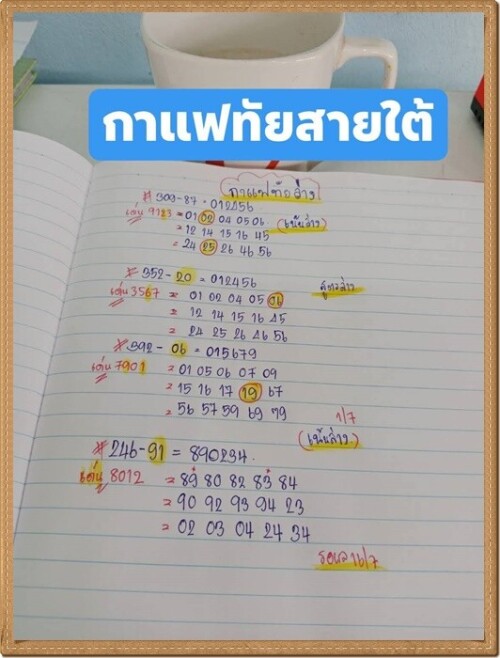 กาแฟทัยสายใต้
กาแฟทัยล่าง
# 309-87 = 012456
เด่น 9123 = 01 02 04 05 06 (เน้นล่าง)
= 12 14 15 16 45
= 24 25 26 46 56
# 352-20 = 012456 สูตรล่าง
เด่น 3567 = 01 02 04 05 06
= 12 14 15 16 45
= 24 25 26 46 56
# 392-06 = 015679
เด่น 7901 = 01 05 06 07 09
= 15 16 17 19 67
= 56 57 59 69 79
1/7
(เน้นล่าง)
# 246-91 = 890234
เด่น 8012 = 89 80 82 83 84
= 90 92 93 94 23
= 02 03 04 24 34
รอผล 16/7